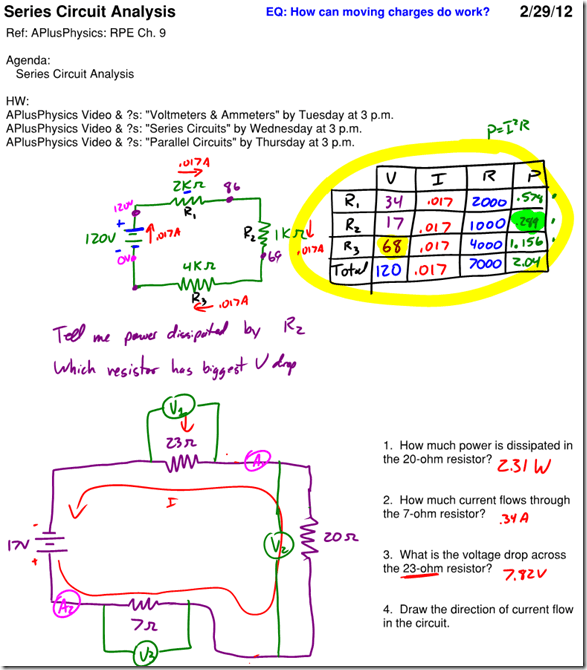 Series Circuit Analysis
EQ: How can moving charges do work?
2/29/12
Ref: APlusPhysics: RPE Ch. 9
Agenda:
Series Circuit Analysis
HW:
APlusPhysics Video & ?s: "Voltmeters & Ammeters" by Tuesday at 3 p.m.
APlusPhysics Video & ?s: "Series Circuits" by Wednesday at 3 p.m.
APlusPhysics Video & ?s: "Parallel Circuits" by Thursday at 3 p.m.
P=I²R
.017A
2KΩ
R₁
86
120V
+
120V
-
0V
.017A
R₂
1KΩ
.017A
69
4KΩ
R₃
.017A
V I R P
R₁ 34 .017 2000 .578
R₂ 17 .017 1000 .289
R₃ 68 .017 4000 1.156
Total 120 .017 7000 2.04
Tell me power dissipated by R₂
Which resistor has biggest V drop
V₁
23Ω
A₁
I
17V
-
+
V₂
20Ω
A₂
7Ω
V₃
1. How much power is dissipated in
the 20-ohm resistor? 2.31 W
2. How much current flows through
the 7-ohm resistor? .34A
3. What is the voltage drop across
the 23-ohm resistor? 7.82V
4. Draw the direction of current flow
in the circuit.